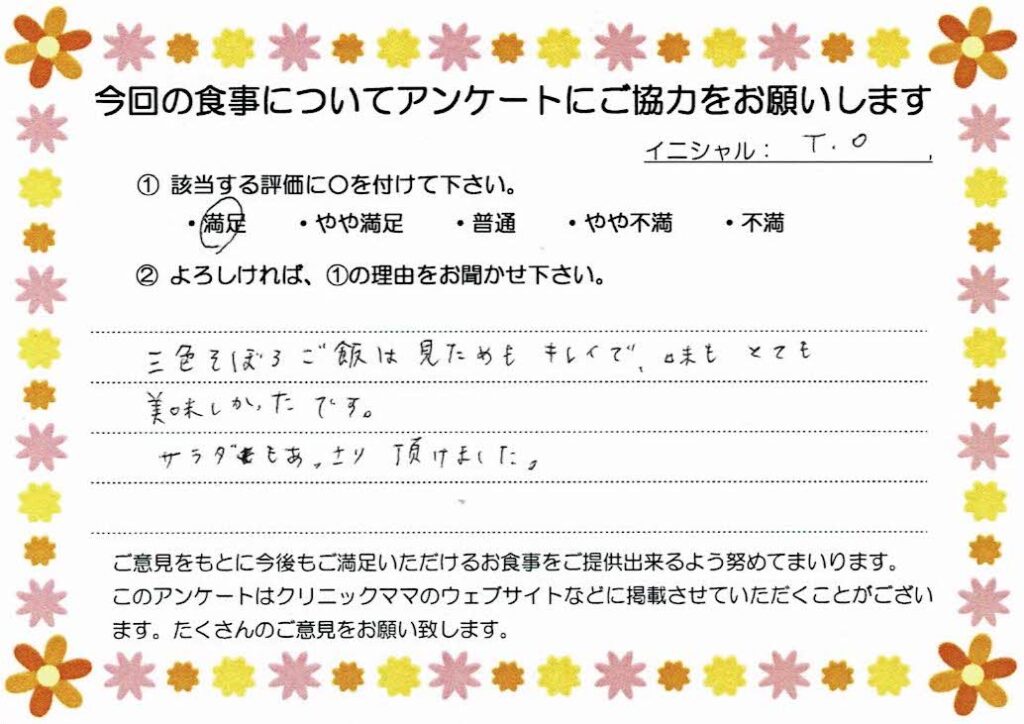 今回の食事についてアンケートにご協力をお願いします
イニシャル： T.O
① 該当する評価に〇を付けて下さい。
・満足 ・やや満足 ・普通 ・やや不満 ・不満
② よろしければ、①の理由をお聞かせ下さい。
三色そぼろご飯は見ためも キレイで、味も とても
美味しかったです。
サラダもあっさり 頂けました。
ご意見をもとに今後もご満足いただけるお食事をご提供出来るよう努めてまいります。
このアンケートはクリニックママのウェブサイトなどに掲載させていただくことがござい
ます。たくさんのご意見をお願い致します。